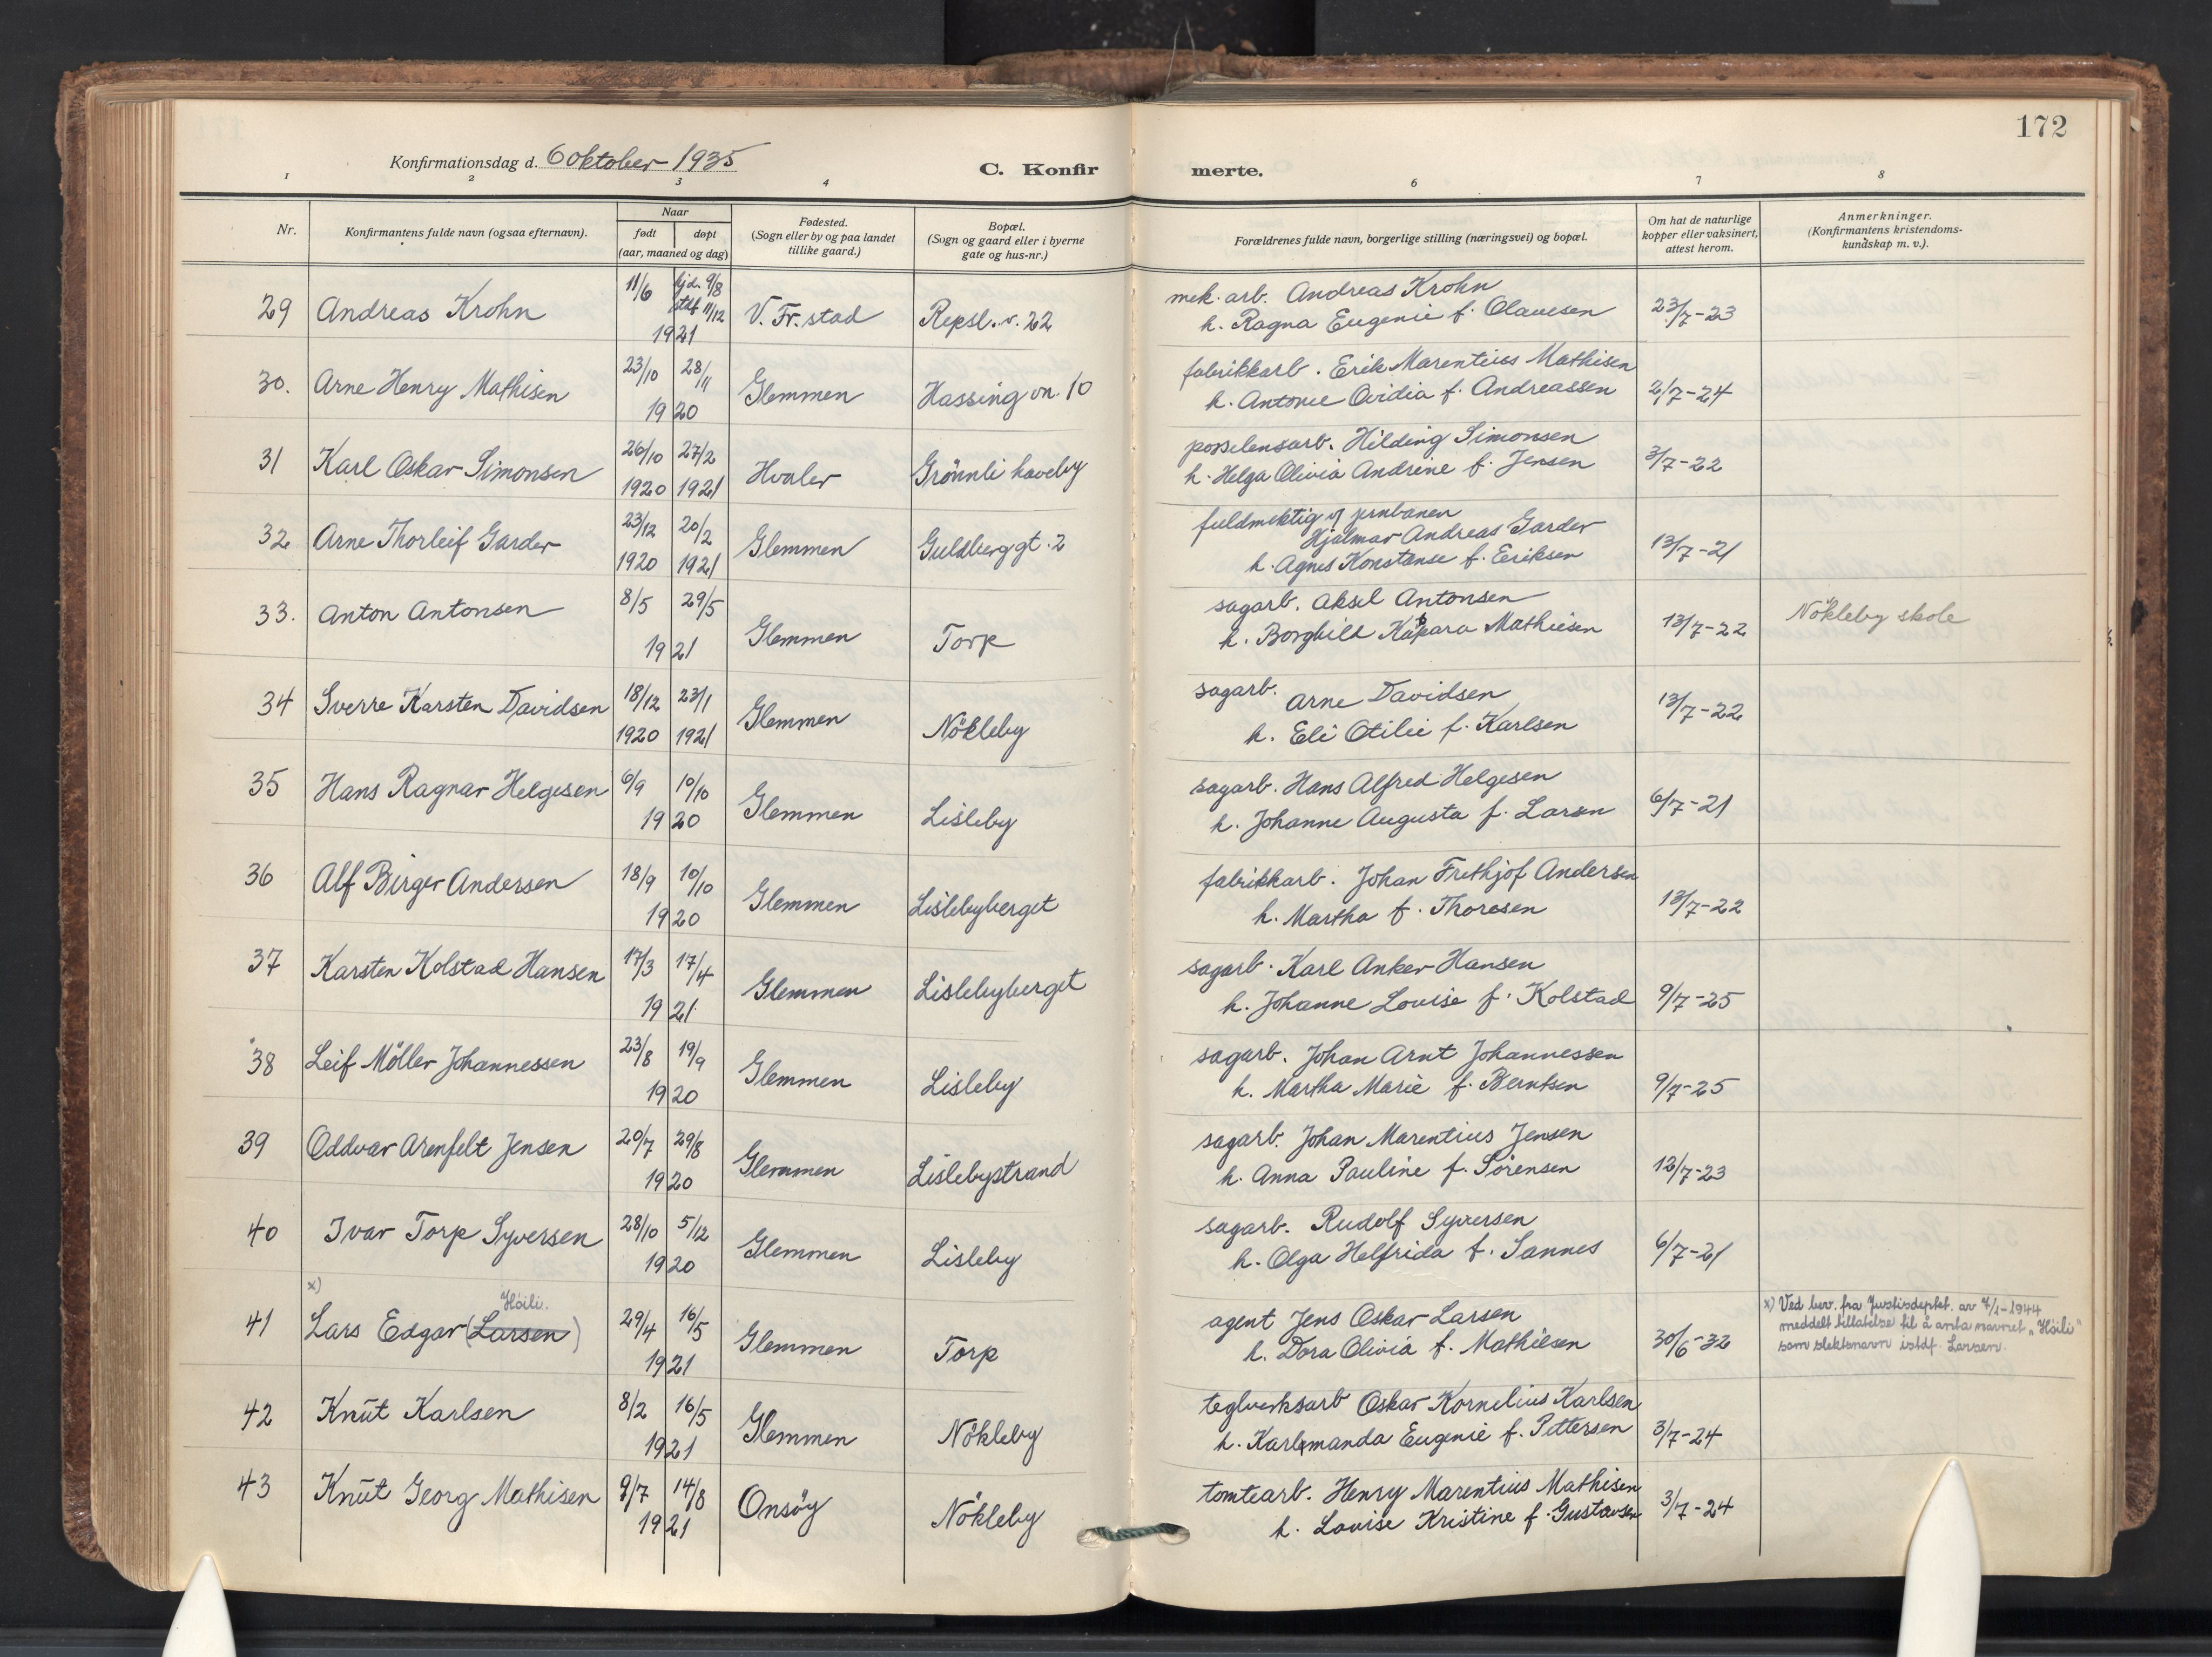 172
Konfirmationsdag d. 6 oktober 1935
C. Konfirmerte.
1 2 3 4 6 7 8
Nr.
Konfirmantens fulde navn (ogsaa efternavn).
Naar
født døpt
(aar, maaned og dag)
Fødested.
(Sogn eller by og paa landet
tillike gaard.)
Bopæl.
(Sogn og gaard eller i byerne
gate og hus-nr.)
Forældrenes fulde navn, borgerlige stilling (næringsvei) og bopæl.
Om hat de naturlige
kopper eller vaksinert,
attest herom.
Anmerkninger.
(Konfirmantens kristendoms-
kundskap m. v.).
29 Andreas Krohn 11/6 hjd. 9/8 stdf 11/12 1921 V. Fr.stad Repsl.v. 22 mek. arb. Andreas Krohn
h. Ragna Eugenie f. Olavesen 23/7-23
30. Arne Henry Mathisen 23/10 28/11 1920 Glemmen Hassing vn. 10 fabrikkarb. Erik Marentius Mathisen
h. Antonie Ovidia f. Andreassen 2/7-24
31 Karl Oskar Simonsen 26/10 1920 27/2 1921 Hvaler Grönnli haveby porselensarb. Hilding Simonsen
h. Helga Olivia Andrine f. Jensen 3/7-22
32 Arne Thorleif Garder 23/12 1920 20/2 1921 Glemmen Guldberggt. 2 fuldmektig v jernbanen
Hjalmar Andreas Garder
h. Agnes Konstanse f. Eriksen 13/7-21
33. Anton Antonsen 8/5 29/5 1921 Glemmen Torp sagarb. Aksel Antonsen
h. Borghild Kapara Mathiesen 13/7-22 Nökleby skole
34 Sverre Karsten Davidsen 18/12 1920 23/1 1921 Glemmen Nökleby sagarb. Arne Davidsen
h. Eli Otilie f. Karlsen 13/7-22
35 Hans Ragnar Helgesen 6/9 10/10 1920 Glemmen Lisleby sagarb. Hans Alfred Helgesen
h. Johanne Augusta f. Larsen 6/7-21
36 Alf Birger Andersen 18/9 10/10 1920 Glemmen Lislebyberget fabrikkarb. Johan Frethjof Andersen
h. Martha f. Thoresen 13/7-22
37 Karsten Kolstad Hansen 17/3 17/4 1921 Glemmen Lislebyberget sagarb. Karl Anker Hansen
h. Johanne Lovise f. Kolstad 9/7-25
38 Leif Möller Johannessen 23/8 19/9 1920 Glemmen Lisleby sagarb. Johan Arnt Johannessen
h. Martha Marie f. Berntsen 9/7-25
39 Oddvar Arenfelt Jensen 20/7 29/8 1920 Glemmen Lislebystrand sagarb. Johan Marentius Jensen
h. Anna Pauline f. Sörensen 12/7-23
40 Ivar Torp Syversen 28/10 5/12 1920 Glemmen Lisleby sagarb. Rudolf Syversen
h. Olga Helfrida f. Sannes 6/7-21
x) Höili.
41 Lars Edgar (Larsen) 29/4 16/5 1921 Glemmen Torp agent Jens Oskar Larsen
h. Dora Olivia f. Mathiesen 30/6-32
x) Ved bev. fra Justisdeptet. av 7/1-1944
meddelt tillatelse til å anta navnet „Höili"
som slektsnavn istdf. Larsen.
42 Knut Karlsen 8/2 16/5 1921 Glemmen Nökleby teglverksarb Oskar Kornelius Karlsen
h. Karlmanda Eugenie f. Pettersen 3/7-24
43 Knut Georg Mathisen 9/7 14/8 1921 Onsöy Nökleby tomtearb. Henry Marentius Mathisen
h. Lovise Kristine f. Gustavsen 3/7-24